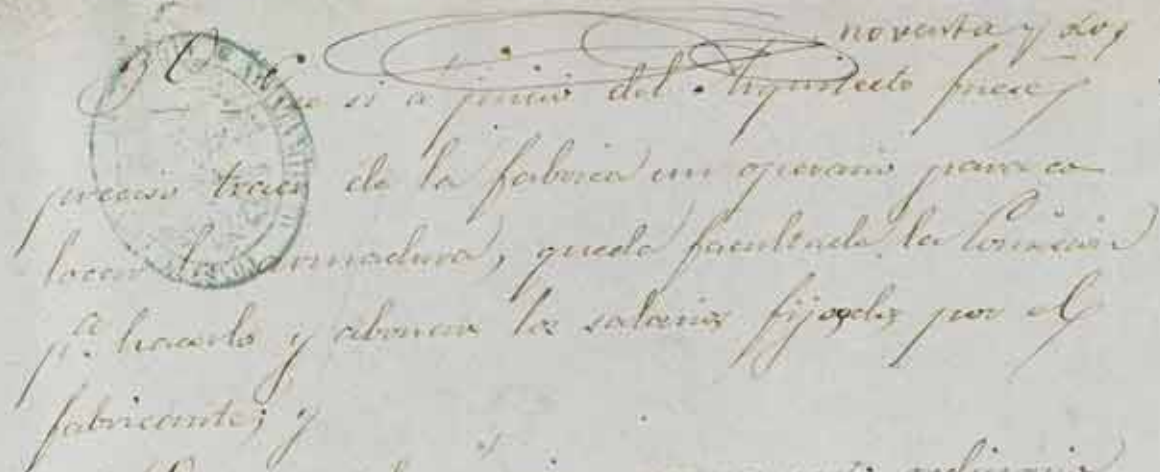 noventa y dos
3º Que si a juicio del Arquitecto fuese
preciso traer de la fabrica un operario para co
locar la armadura, queda facultada la Comision
pª hacerlo y abonar los salarios fijados por el
fabricante; y